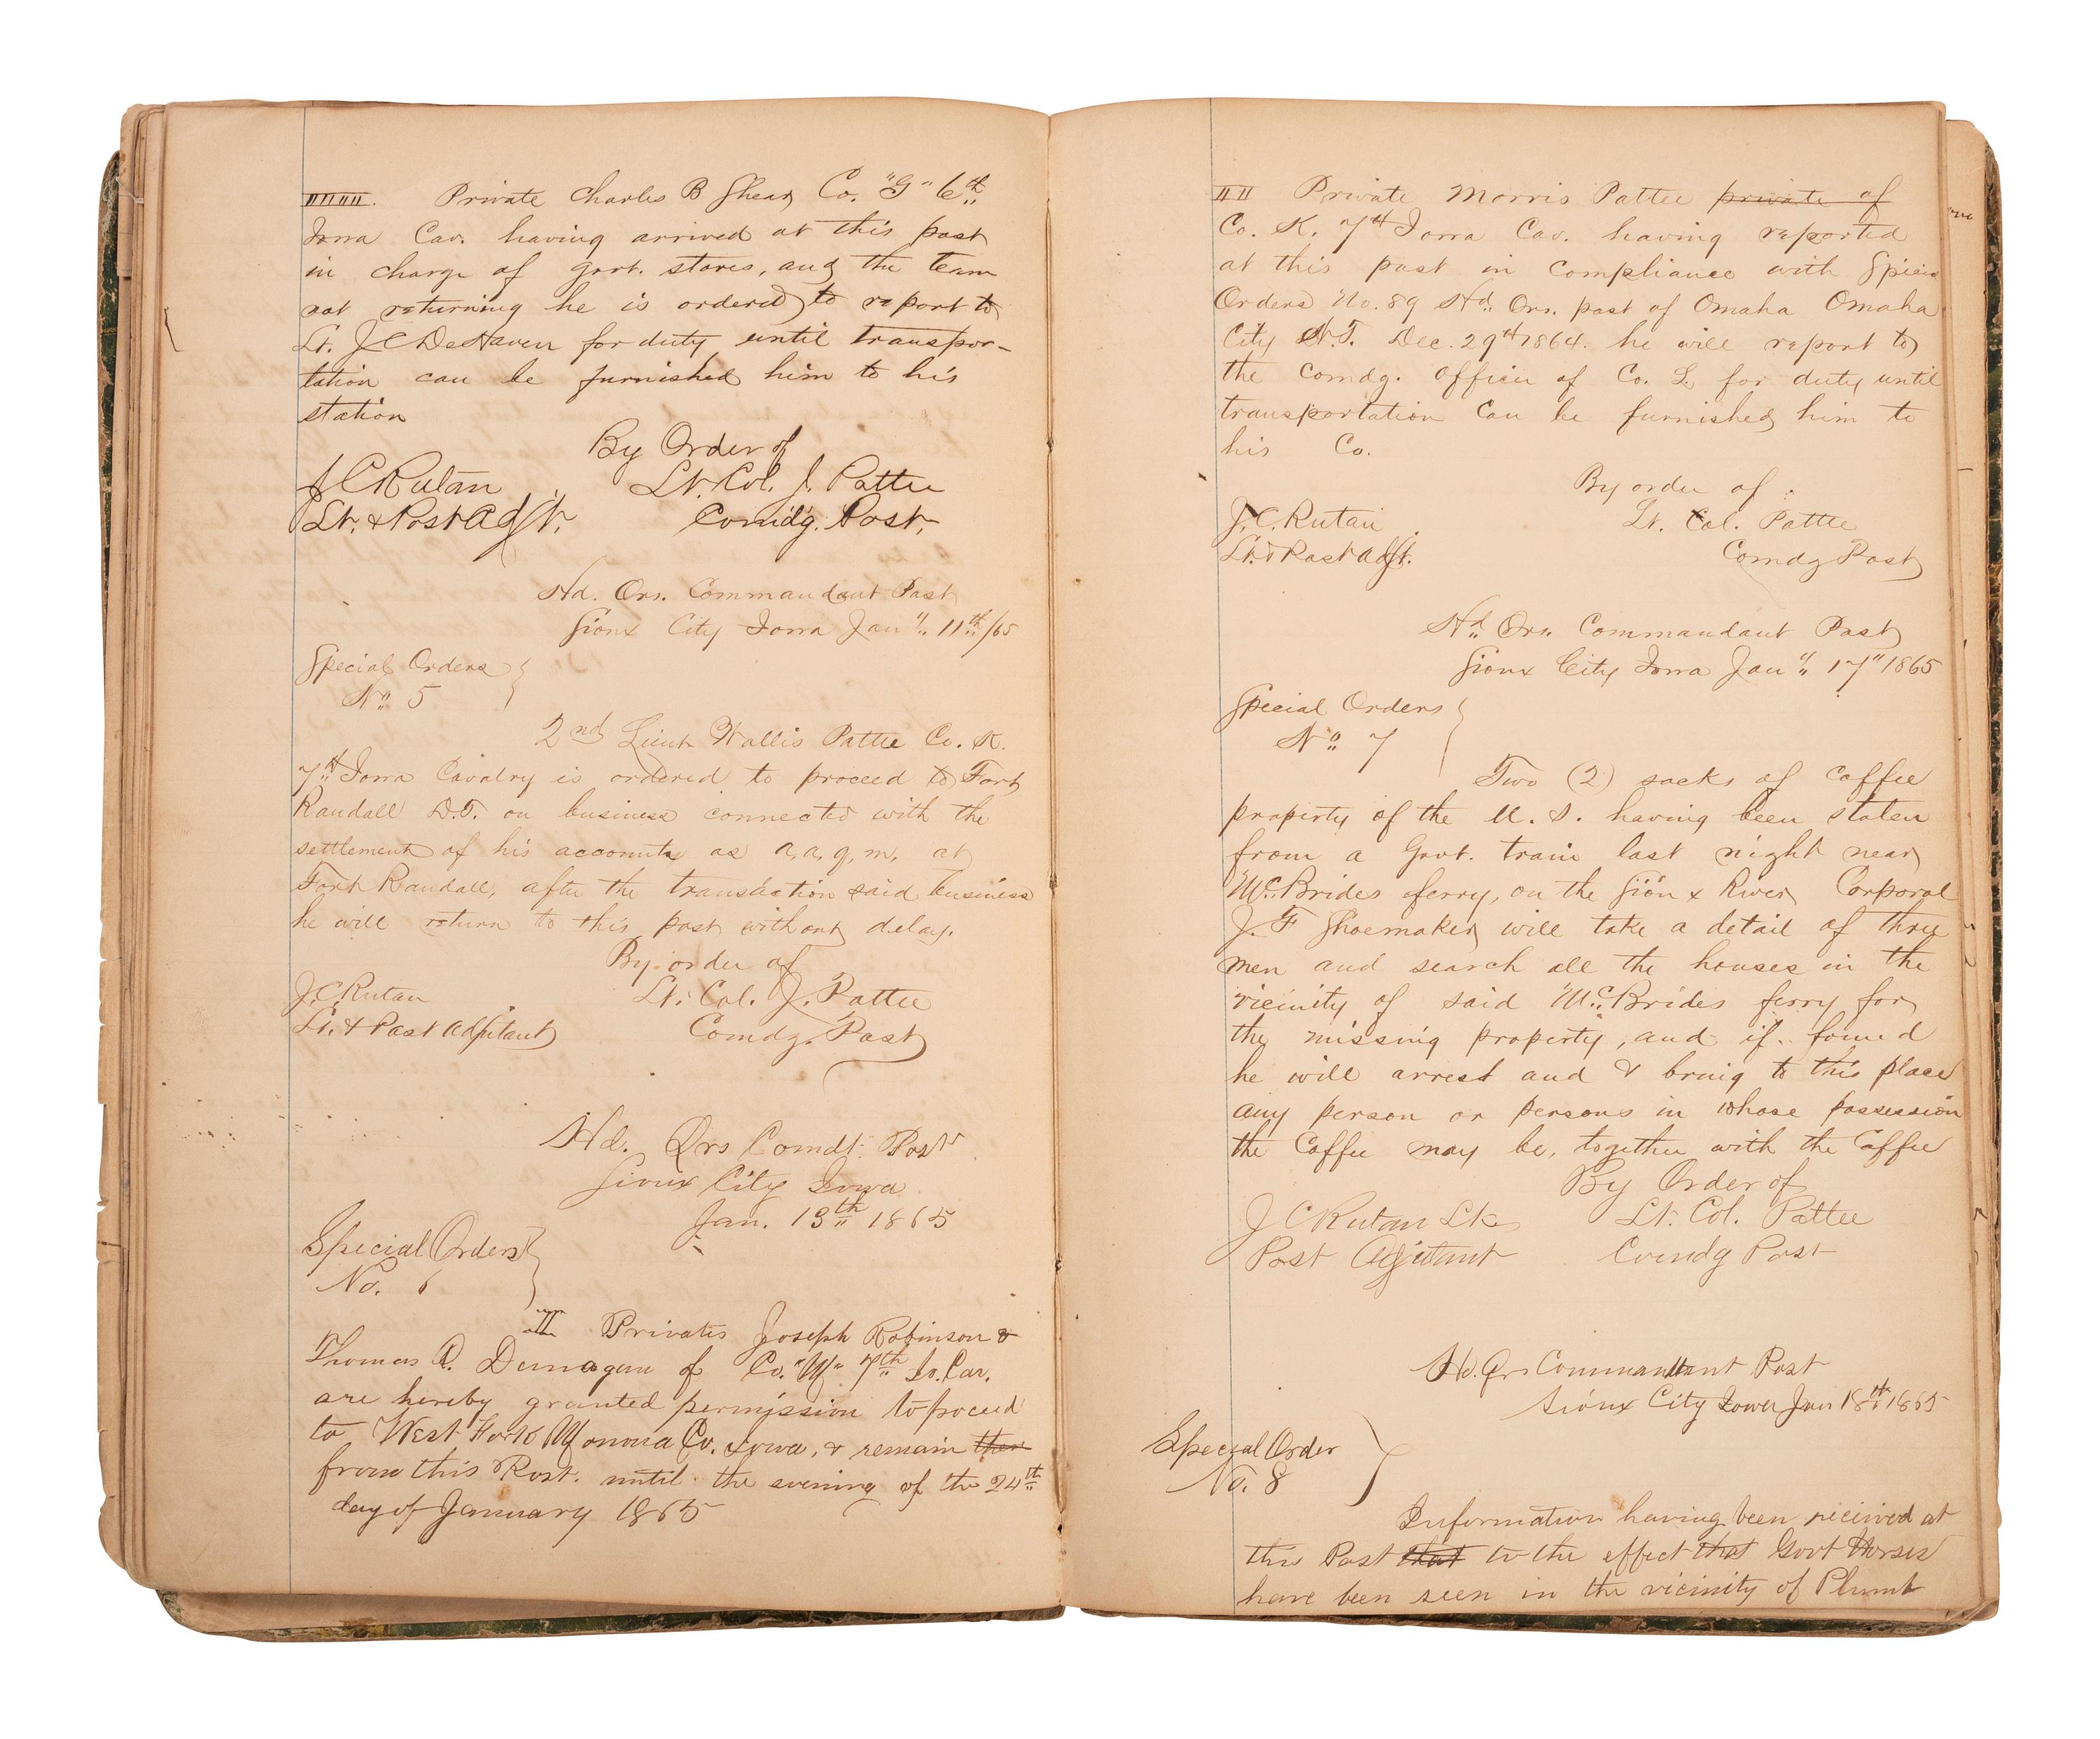 Private Charles B Shear Co. "G" 6th
Iowa Cav. having arrived at this post
in charge of govt. stores, and the team
not returning he is ordered to report to
Lt. J C DeHaven for duty until transpor-
tation can be furnished him to his
station
By Order of
J C Rutan Lt. Col. J. Pattee
Lt. & Post Adjt. Comd'g. Post.
Hd. Qrs. Commandant Post
Sioux City Iowa Jan'y. 11th/65
Special Orders
No 5
2nd Lieut Wallis Pattee Co. K.
7th Iowa Cavalry is ordered to proceed to Fort
Randall D.T. on business connected with the
settlement of his accounts as a. a. q. m. at
Fort Randall, after the transaction said business
he will return to this post without delay.
By order of
J. C. Rutan Lt. Col. J. Pattee
Lt. & Post Adjutant Comdg. Post
Hd. Qrs Comdt. Post
Sioux City Iowa
Jan. 13th 1865
Special Orders
No. 6
II Privates Joseph Robinson &
Thomas of Co. "M" 7th Io. Cav.
are hereby granted permission to proceed
to West Fork Monona Co. Iowa, & remain
from this Post. until the evening of the 24th
day of January 1865
II Private Morris Pattee private of
Co. K. 7th Iowa Cav. having reported
at this post in compliance with
Orders No. 89 Hd. Qrs. post of Omaha Omaha
City N.T. Dec. 29th 1864. he will report to
the Comdg. Officer of Co. L. for duty until
transportation can be furnished him to
his Co.
By order of
J. C. Rutan Lt. Col. Pattee
Lt. & Post Adjt. Comdg Post
Hd. Qrs. Commandant Post
Sioux City Iowa Jan'y. 17" 1865
Special Orders
No 7
Two (2) sacks of coffee
property of the U. S. having been stolen
from a Govt. train last night near
McBrides ferry, on the Sioux River Corporal
J. F Shoemaker will take a detail of three
men and search all the houses in the
vicinity of said McBrides ferry for
the missing property, and if found
he will arrest and & bring to this place
any person or persons in whose possession
the Coffee may be, together with the Coffee
By Order of
J C Rutan Lt & Lt. Col. Pattee
Post Adjutant Comdg Post
Hd. Qrs Commandant Post
Sioux City Iowa Jan 18th 1865
Special Order
No. 8
Information having been received at
this Post that to the effect that Govt Horses
have been seen in the vicinity of